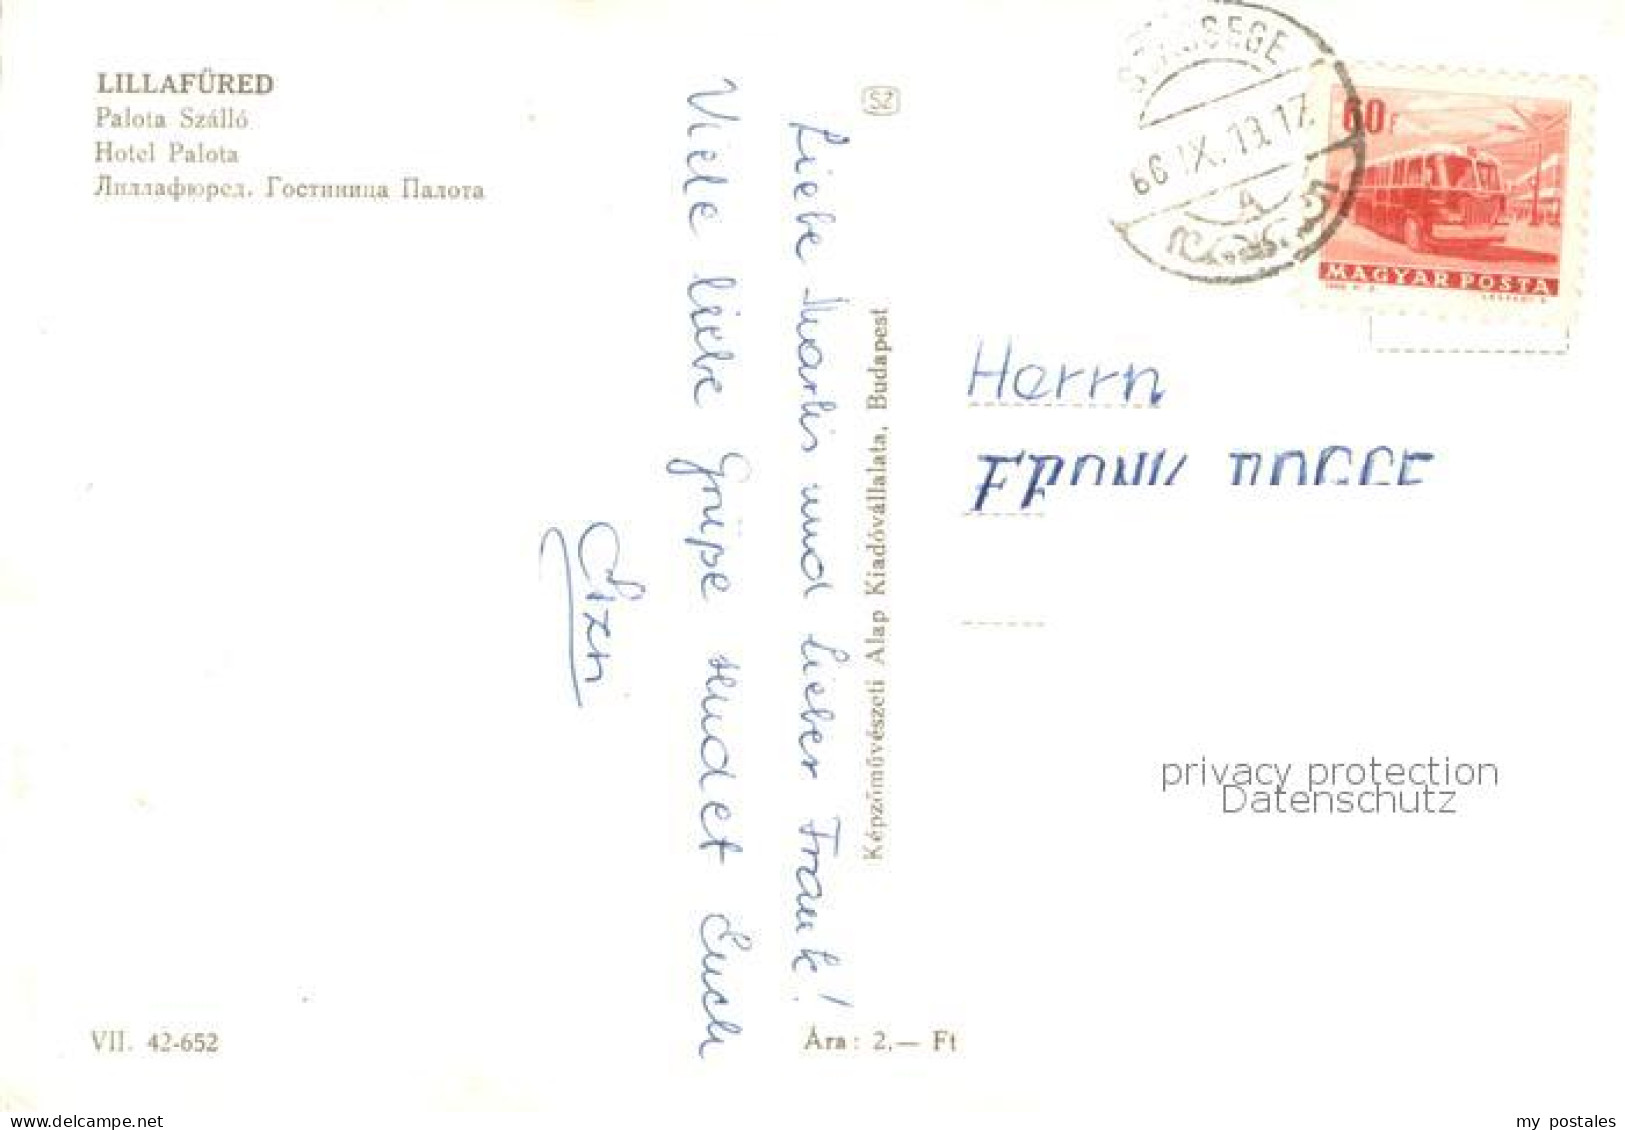 LILLAFÜRED
Palota Szálló
Hotel Palota
Лиллафюред. Гостиница Палота
Liebe Marlis und lieber Frank!
Viele liebe Grüße sendet Euch
Sizni
SZ
Képzőművészeti Alap Kiadóvállalata, Budapest
66 IX. 19. 17
A
60 F
MAGYAR POSTA
Herrn
privacy protection
Datenschutz
VII. 42-652
Ára: 2.— Ft
delcampe.net
my_postales